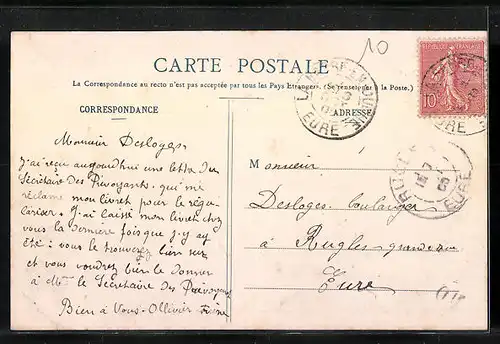 10
CARTE POSTALE
La Correspondance au recto n'est pas acceptée par tous les Pays Etrangers. (Se renseigner à la Poste.)
CORRESPONDANCE
ADRESSE
REPUBLIQUE FRANÇAISE
10
EURE
EURE
EURE
Monsieur Desloges
j'ai reçu aujourd'hui une lettre du
Secrétaire des Prévoyants qui me
réclame mon livret pour le régu-
lariser. J'ai laissé mon livret chez
vous la dernière fois que j'y ay
été : vous le trouverez bien sur
et vous voudrez bien le donner
à Mr le Secrétaire des Prévoyants
Bien à Vous - Ollivier
Monsieur
Desloges boulanger
à Rugles
Eure